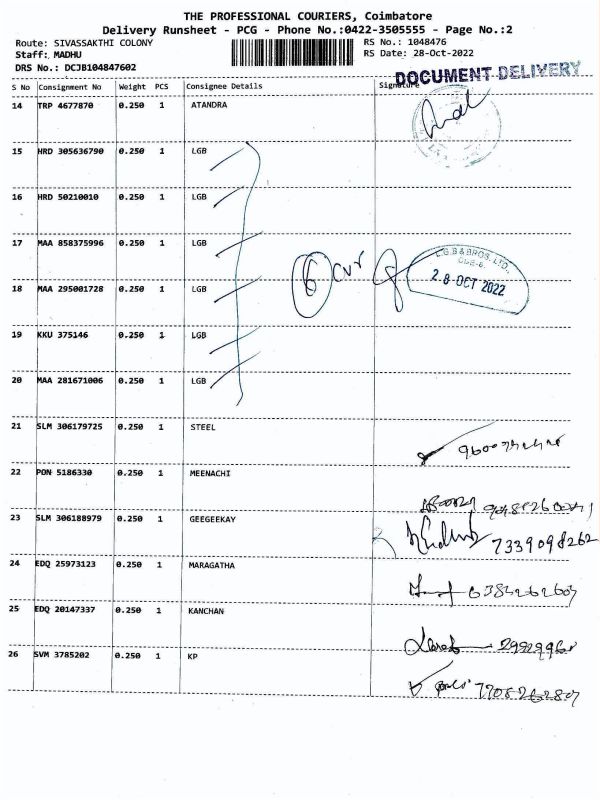 THE PROFESSIONAL COURIERS, Coimbatore
Delivery Runsheet - PCG - Phone No.:0422-3505555 - Page No.:2
Route: SIVASSAKTHI COLONY
Staff: MADHU
DRS No.: DCJB104847602
RS No.: 1048476
RS Date: 28-Oct-2022
DOCUMENT DELIVERY
S No Consignment No Weight PCS Consignee Details Signature
14 TRP 4677870 0.250 1 ATANDRA
15 HRD 305636790 0.250 1 LGB
16 HRD 50210010 0.250 1 LGB
17 MAA 858375996 0.250 1 LGB
L.G.B & BROS. LTD.,
6 cvr
28 OCT 2022
18 MAA 295001728 0.250 1 LGB
19 KKU 375146 0.250 1 LGB
20 MAA 281671006 0.250 1 LGB
21 SLM 306179725 0.250 1 STEEL
22 PON 5186330 0.250 1 MEENACHI
23 SLM 306188979 0.250 1 GEEGEEKAY
7339098262
24 EDQ 25973123 0.250 1 MARAGATHA
25 EDQ 20147337 0.250 1 KANCHAN
26 SVM 3785202 0.250 1 KP